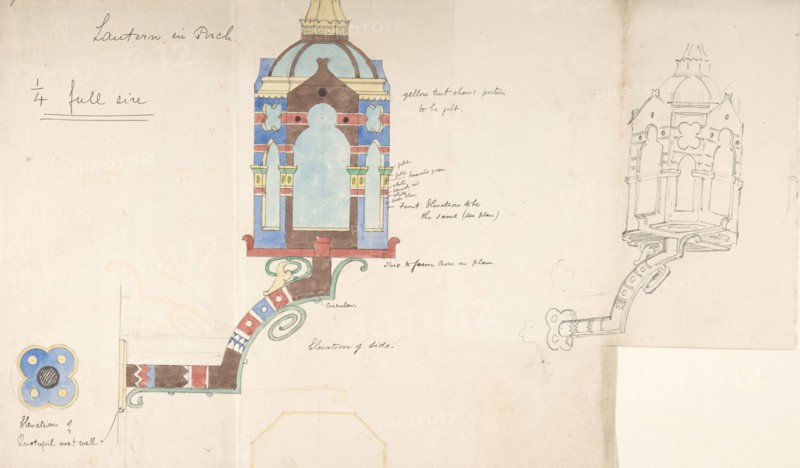 Lantern in Porch.
1/4 full size
yellow tint shows portion
to be gilt.
gilt
white
Front Elevation to be
the same (see plan)
this to form cross on plan
Circular
Elevation of side.
Elevation of
Quatrefoil next wall